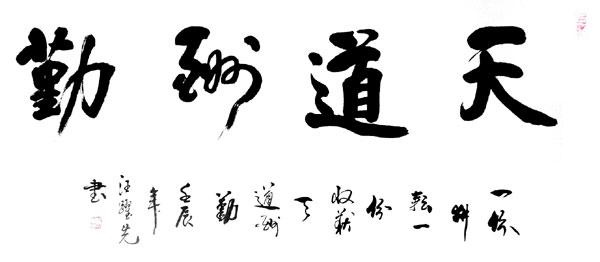 天道酬勤
一份耕耘一份收获天道酬勤壬辰年汪先書